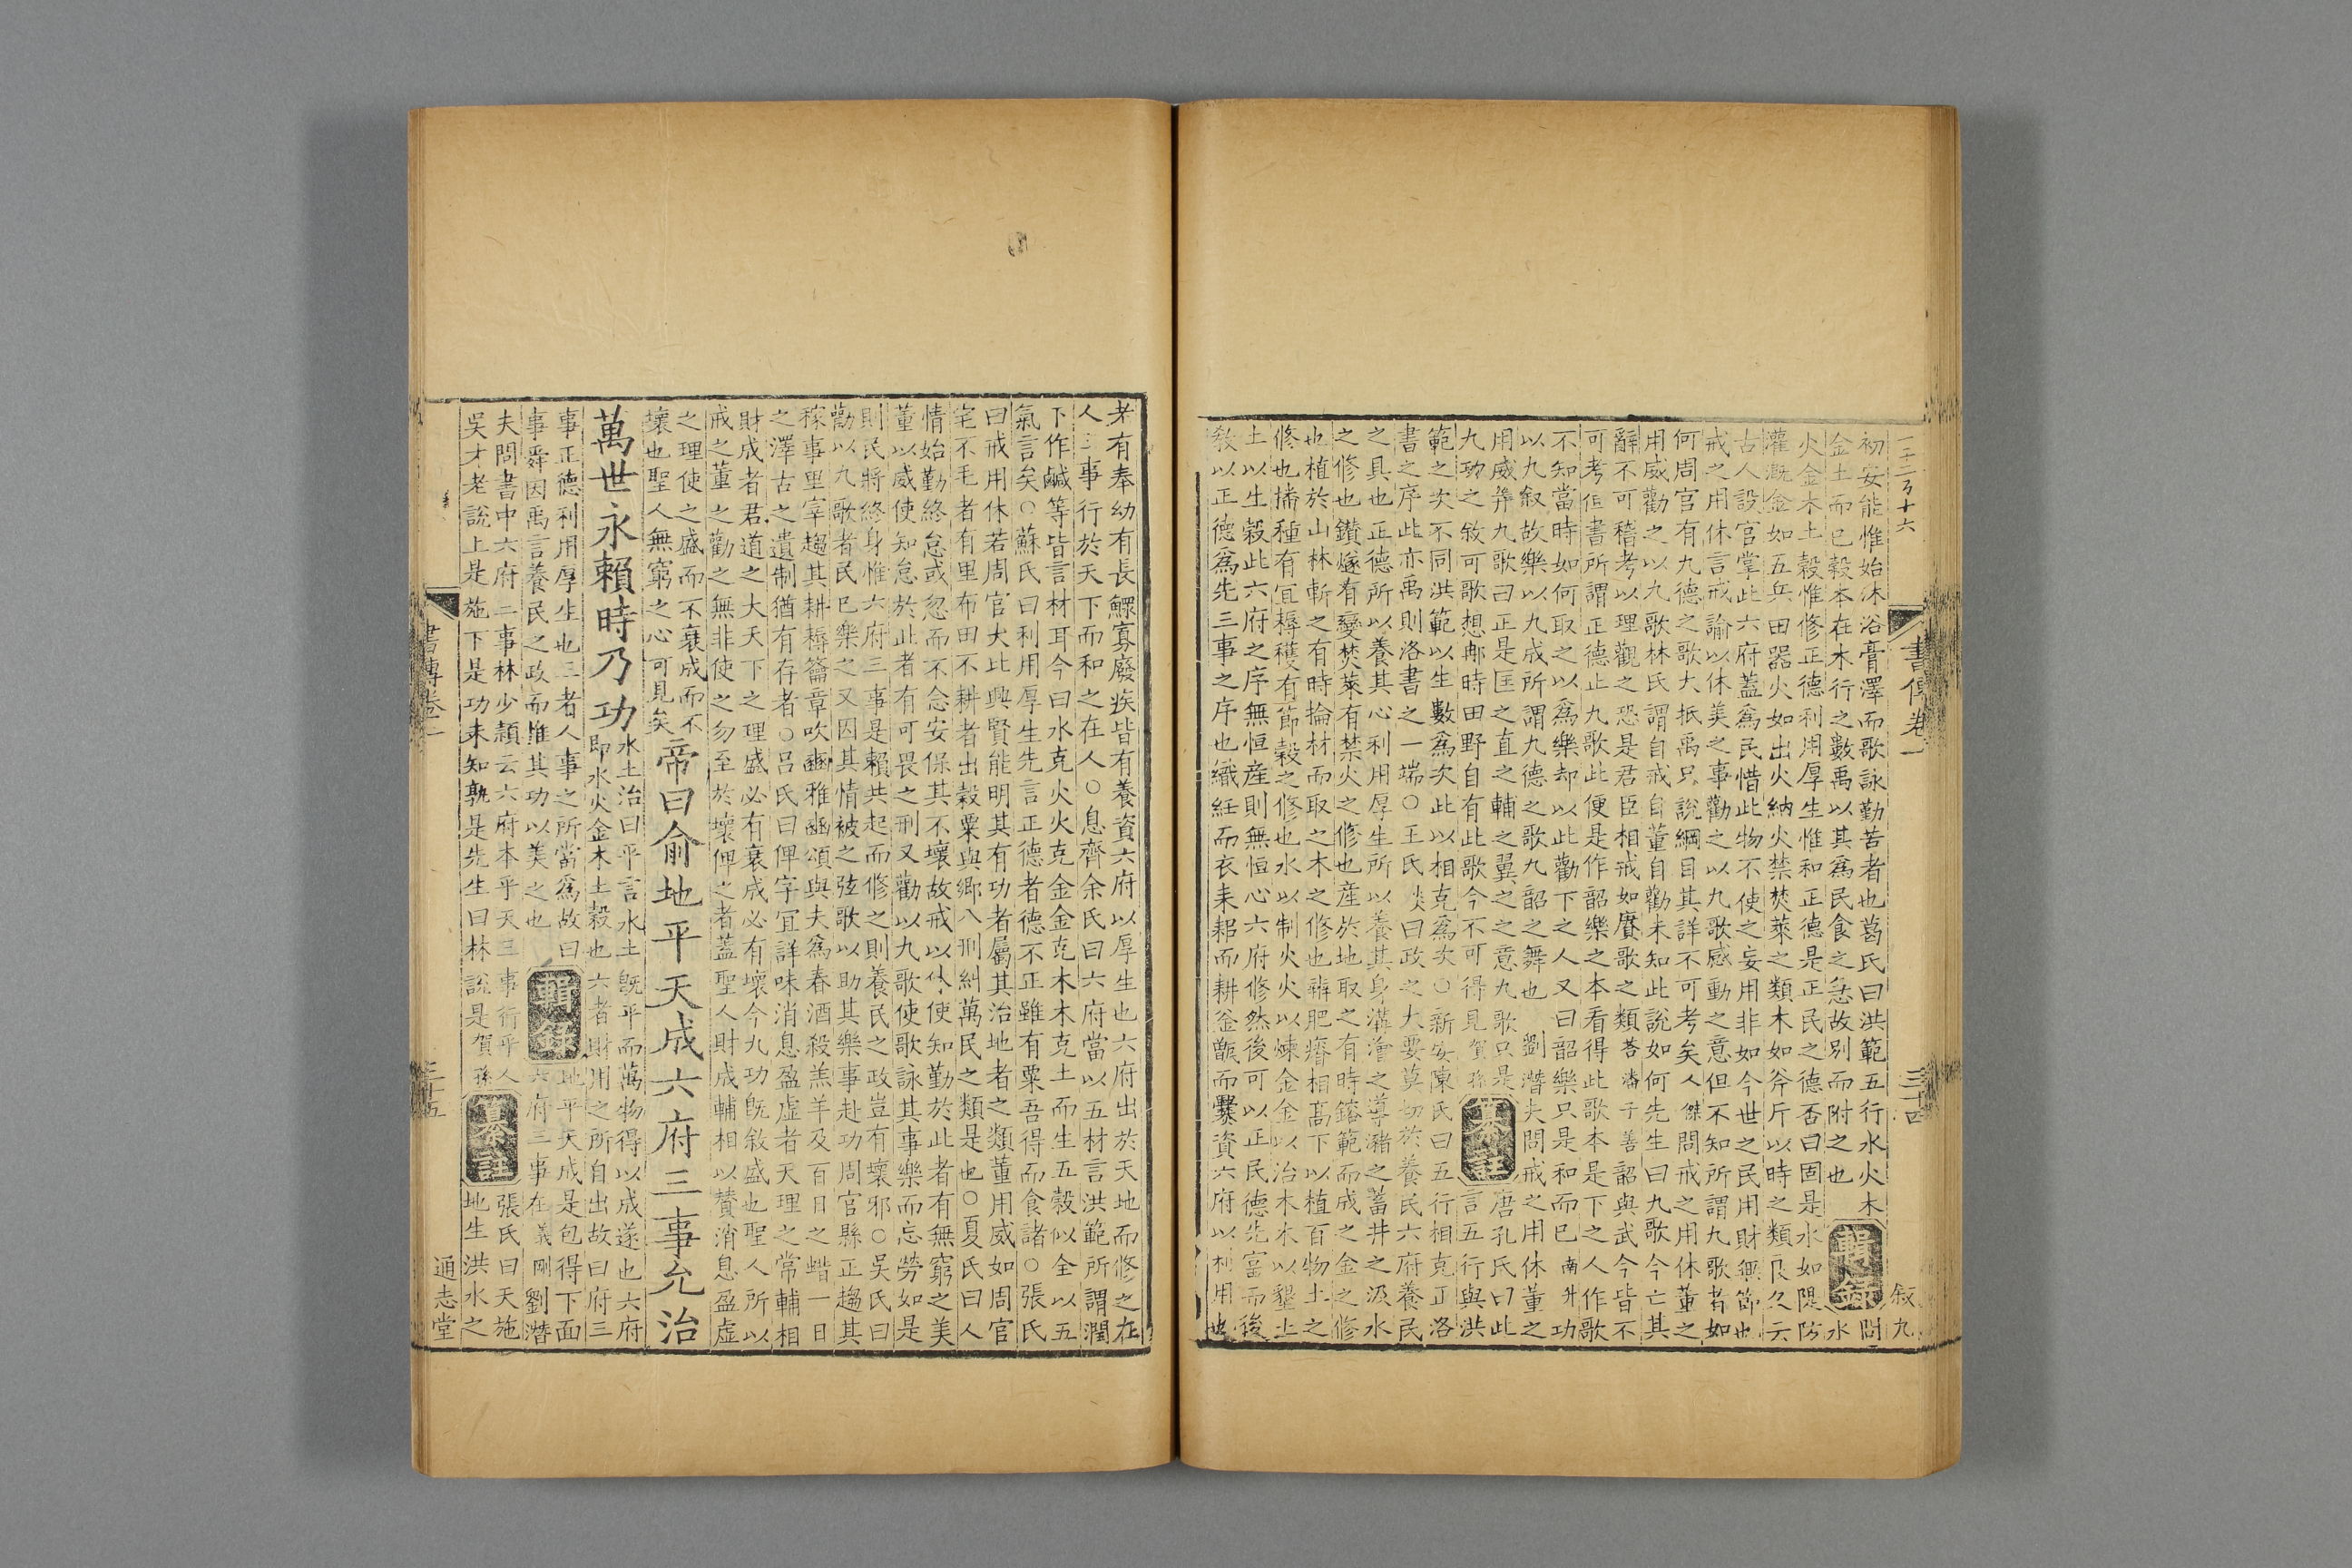 一千二百十六
書傳卷一
三十四
敘九
初安能惟始沐浴膏澤而歌詠勤苦者也葛氏曰洪範五行水火木
金土而已穀本在木行之數禹以其爲民食之急故別而附之也輯錄問
火金木土穀惟修正德利用厚生惟和正德是正民之德否曰固是水如隄防
灌溉金如五兵田器火如出火納火禁焚萊之類木如斧斤以時之類良久云
古人設官掌此六府蓋爲民惜此物不使之妄用非如今世之民用財無節也
戒之用休言戒諭以休美之事勸之以九歌感動之意但不知所謂九歌者如
何周官有九德之歌大抵禹只說綱目其詳不可考矣人傑問戒之用休董之
用威勸之以九歌林氏謂自戒自董自勸未知此說如何先生曰九歌今亡其
辭不可稽考以理觀之恐是君臣相戒如賡歌之類答潘子善韶與武今皆不
可考但書所謂正德止九歌此便是作韶樂之本看得此歌本是下之人作歌
不知當時如何取之以爲樂却以此勸下之人又曰韶樂只是和而已南升功
以九敘故樂以九成所謂九德之歌九韶之舞也劉潛夫問戒之用休董之
用威幷九歌曰正是匡之直之輔之翼之之意九歌只是唐孔氏曰此
九功之敘可歌想那時田野自有此歌今不可得見賀孫纂註言五行與洪
範之次不同洪範以生數爲次此以相克爲次○新安陳氏曰五行相克正洛
書之序此亦禹則洛書之一端○王氏炎曰政之大要莫切於養民六府養民
之具也正德所以養其心利用厚生所以養其身溝澮之導瀦之蓄井之汲水
之修也鑽燧有變焚萊有禁火之修也産於地取之有時鎔範而成之金之修
也植於山林斬之有時掄材而取之木之修也辨肥瘠相髙下以植百物土之
修也播種有宜耨穫有節穀之修也水以制火火以煉金金以治木木以墾土
土以生穀此六府之序無恒産則無恒心六府修然後可以正民德先富而後
敎以正德爲先三事之序也織紝而衣耒耜而耕釡甑而爨資六府以利用也
老有奉幼有長鰥寡廢疾皆有養資六府以厚生也六府出於天地而修之在
人三事行於天下而和之在人○息齊余氏曰六府當以五材言洪範所謂潤
下作鹹等皆言材耳今曰水克火火克金金克木木克土而生五穀似全以五
氣言矣○蘇氏曰利用厚生先言正德者德不正雖有粟吾得而食諸○張氏
曰戒用休若周官大比興賢能明其有功者屬其治地者之類董用威如周官
宅不毛者有里布田不耕者出穀粟與鄉八刑糾萬民之類是也○夏氏曰人
情始勤終怠或忽而不念安保其不壞故戒以休使知勤於此者有無窮之美
董以威使知怠於此者有可畏之刑又勸以九歌使歌詠其事樂而忘勞如是
則民將終身惟六府三事是賴共起而修之則養民之政豈有壞邪○吳氏曰
勸以九歌者民已樂之又因其情被之弦歌以助其樂事赴功周官縣正趨其
稼事里宰趨其耕耨籥章吹豳雅豳頌與夫爲春酒殺羔羊及百日之蜡一日
之澤古之遺制猶有存者○呂氏曰俾字宜詳味消息盈虚者天理之常輔相
財成者君道之大天下之理盛必有衰成必有壞今九功旣敘盛也聖人所以
戒之董之勸之無非使之勿至於壞俾之者蓋聖人財成輔相以贊消息盈虚
之理使之盛而不衰成而不
壞也聖人無窮之心可見矣帝曰俞地平天成六府三事允治
萬世永賴時乃功水土治曰平言水土旣平而萬物得以成遂也六府
即水火金木土穀也六者財用之所自出故曰府三
事正德利用厚生也三者人事之所當爲故曰輯錄地平天成是包得下面
事舜因禹言養民之政而惟其功以美之也六府三事在義剛劉潛
夫問書中六府三事林少穎云六府本乎天三事行乎人張氏曰天施
吳才老說上是施下是功未知孰是先生曰林說是賀孫纂註地生洪水之
書傳卷一
三十五
通志堂